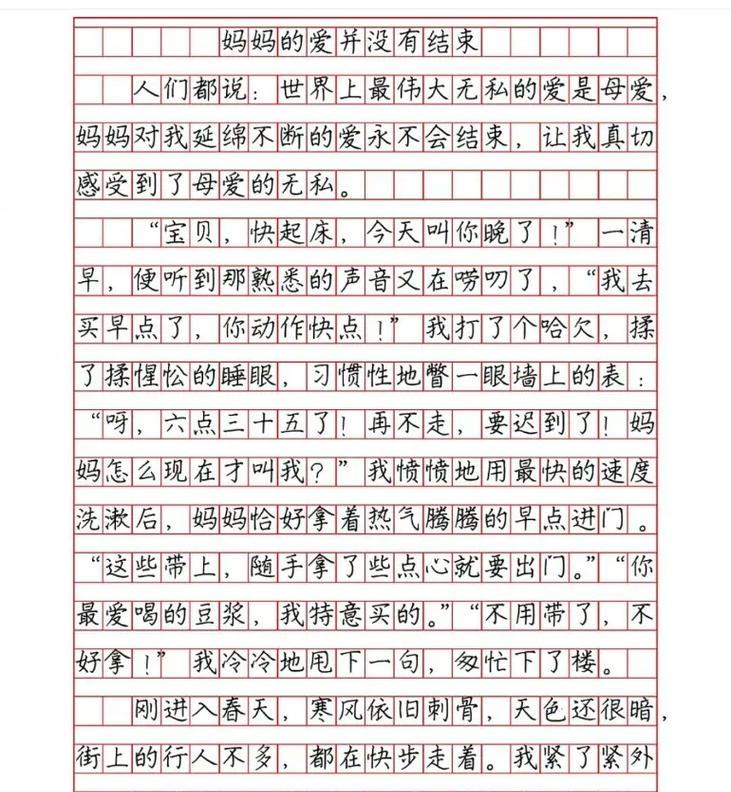 妈妈的爱并没有结束
人们都说：世界上最伟大无私的爱是母爱，
妈妈对我延绵不断的爱永不会结束，让我真切
感受到了母爱的无私。
“宝贝，快起床，今天叫你晚了！”一清
早，便听到那熟悉的声音又在唠叨了，“我去
买早点了，你动作快点！”我打了个哈欠，揉
了揉惺忪的睡眼，习惯性地瞥一眼墙上的表：
“呀，六点三十五了！再不走，要迟到了！妈
妈怎么现在才叫我？”我愤愤地用最快的速度
洗漱后，妈妈恰好拿着热气腾腾的早点进门。
“这些带上，随手拿了些点心就要出门。”“你
最爱喝的豆浆，我特意买的。”“不用带了，不
好拿！”我冷冷地甩下一句，匆忙下了楼。
刚进入春天，寒风依旧刺骨，天色还很暗，
街上的行人不多，都在快步走着。我紧了紧外